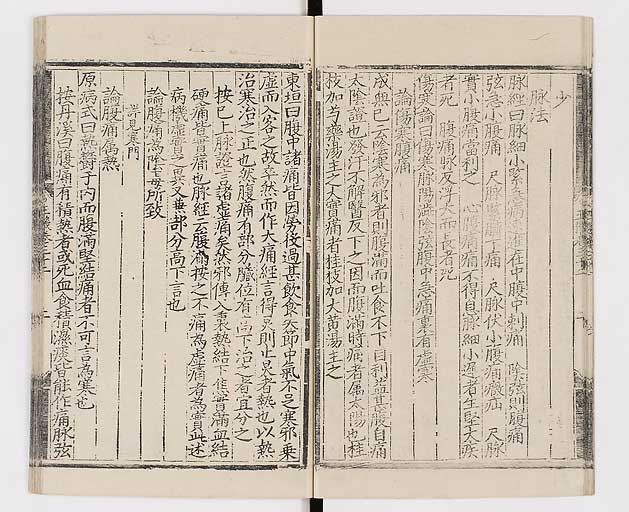 少
脉法
脉經曰脉細小緊急病進在中腹中刺痛 陰弦則腹痛
弦急小腹痛 尺脉緊臍下痛 尺脉伏小腹痛癥疝 尺脉
實小腹痛當利之 心腹痛痛不得息脉細小遲者生堅大疾
者死 腹痛脉反浮大而長者死
傷寒論曰傷寒脉陽濇陰弦腹中急痛裏有虛寒
論傷寒腹痛
成無已云陰寒為邪者則腹滿而吐食不下自利益甚腹自痛
太陰證也發汗不解醫反下之因而腹滿時痛者屬太陽也桂
枝加芍藥湯主之大實痛者桂枝加大黃湯主之
東垣曰腹中諸痛皆因勞役過甚飲食失節中氣不足寒邪乘
虛而入客之故卒然而作大痛經言得炅則止炅者熱也以熱
治寒治之正也然腹痛有部分臟位有高下治之者宜分之
按已上脉證言諸虛痛矣然邪傳入裏熱結下焦實滿血結
硬痛皆實痛也脉經云腹滿按之不痛為虛痛者為實此述
病機虛實之異又兼部分高下言也
論腹痛為陰毒所致
詳見寒門
論腹痛屬熱
原病式曰熱鬱于內而腹滿堅結痛者不可言為寒也
按丹溪曰腹痛有積熱者或死血食積濕痰皆能作痛脉弦